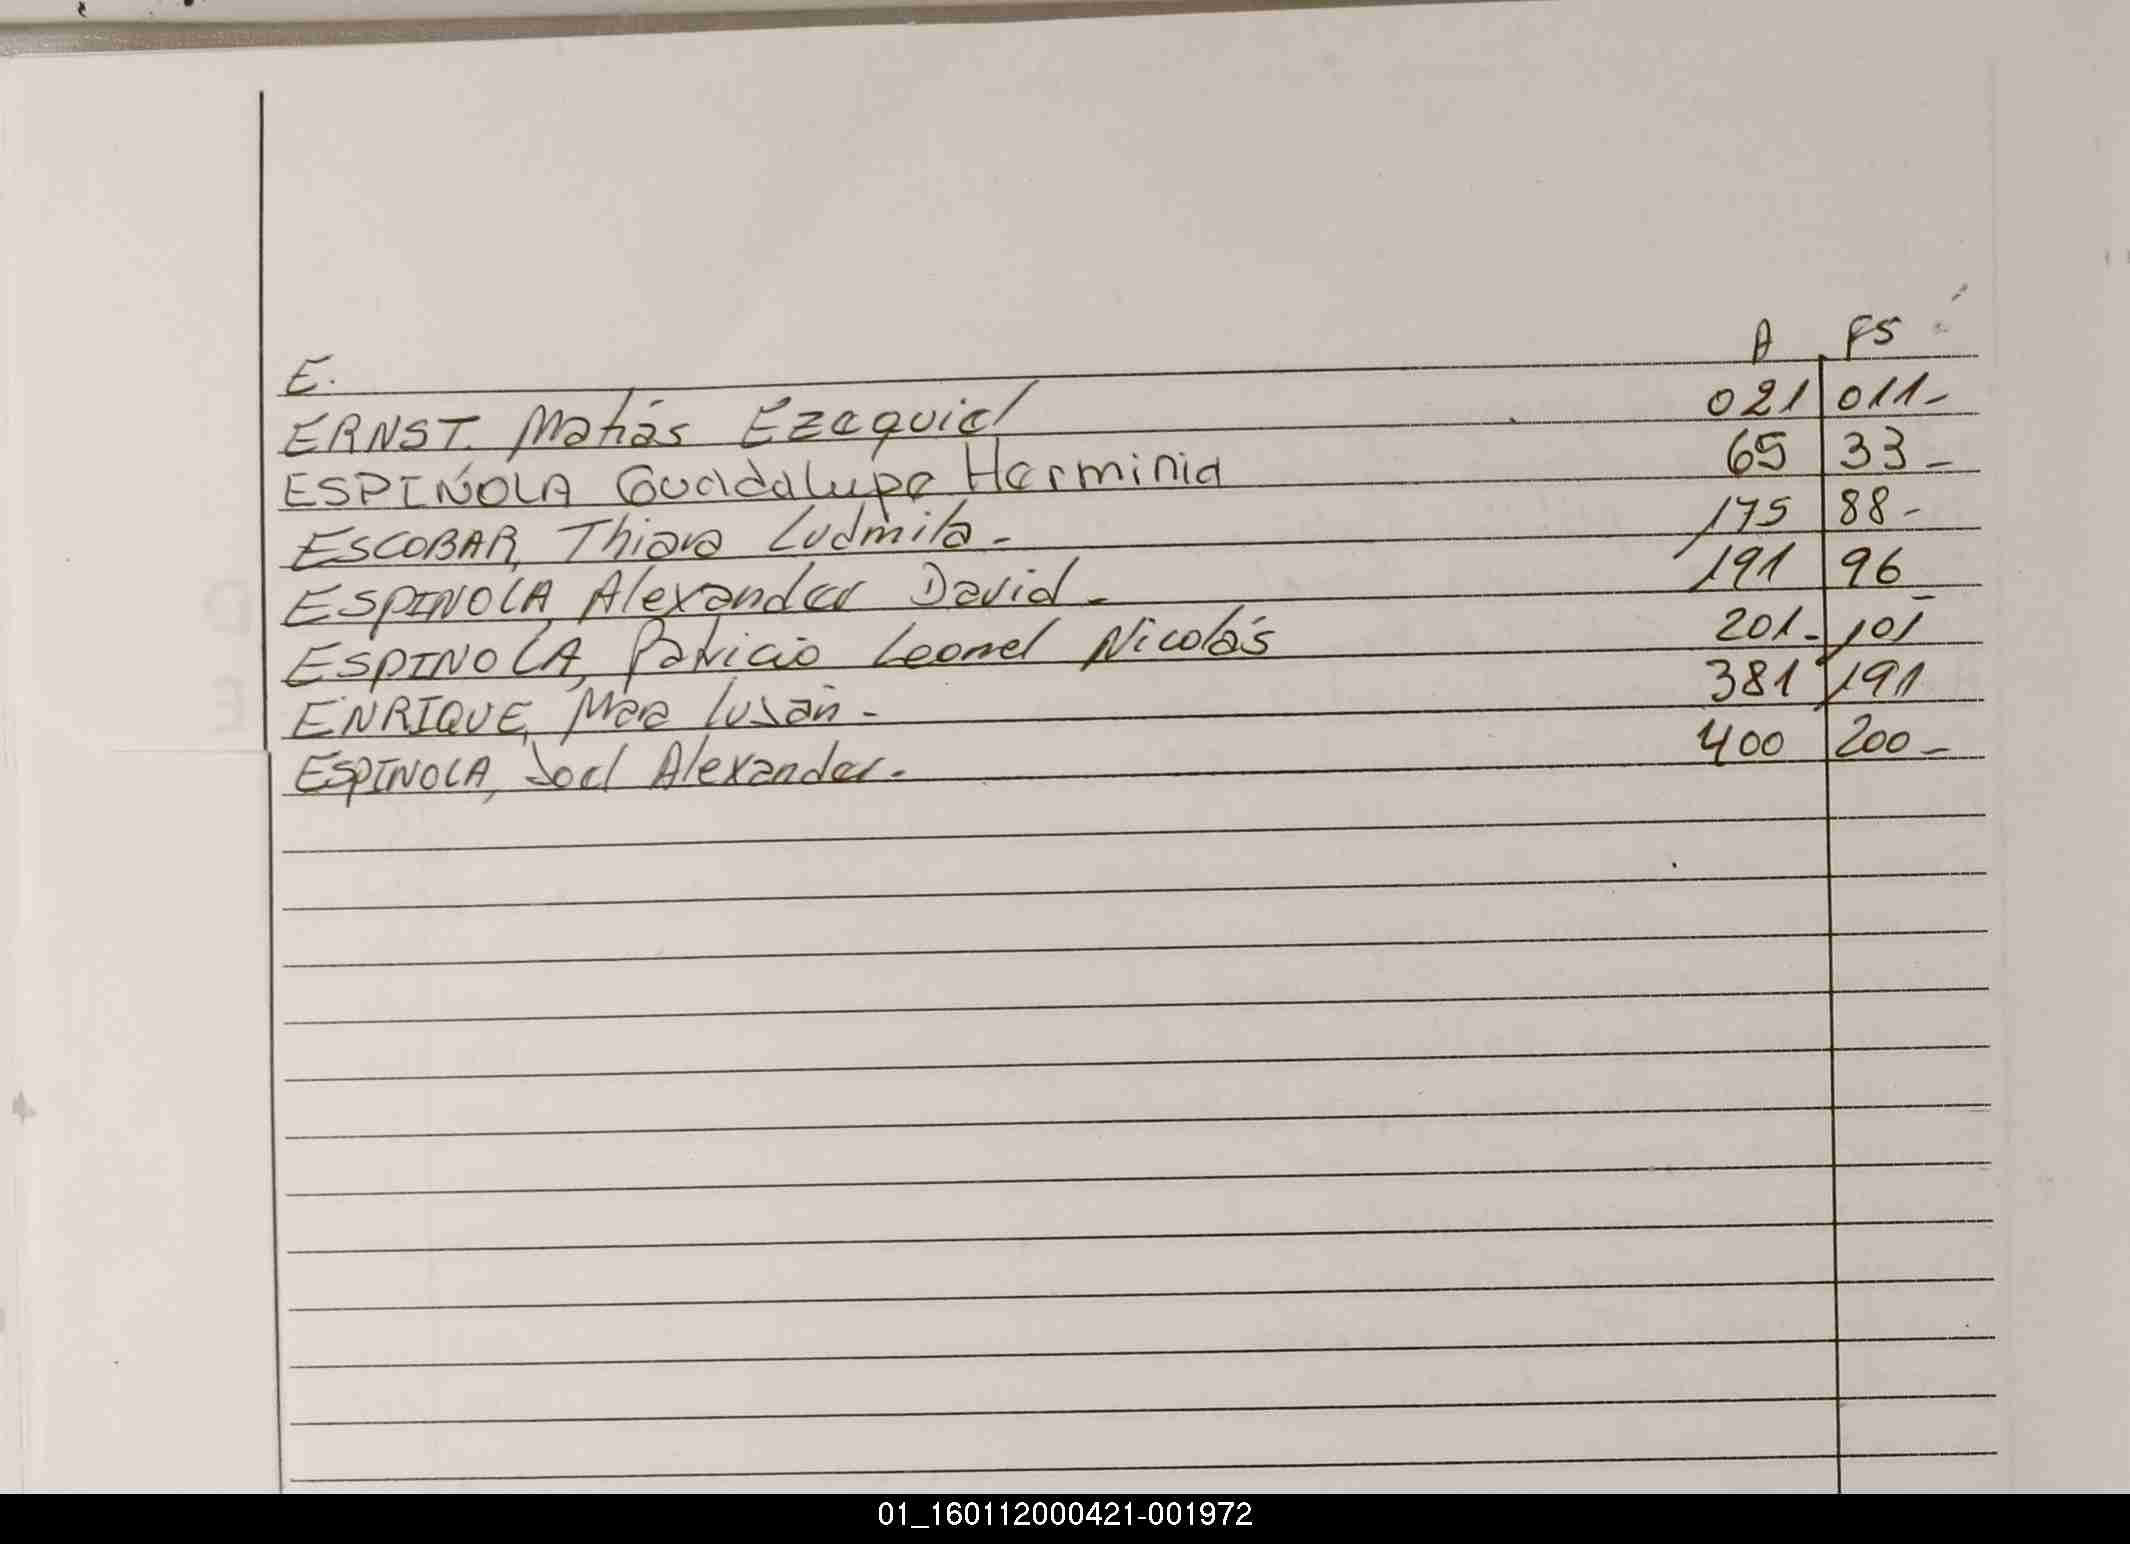 A FS
E.
ERNST. Matías Ezequiel 021 011-
ESPIÑOLA Guadalupe Herminia 65 33-
ESCOBAR, Thiara Ludmila - 175 88-
ESPINOLA, Alexander David - 191 96-
ESPINOLA, Patricio Leonel Nicolás 201- 101
ENRIQUE, Mara 381 191
ESPINOLA, Joel Alexander - 400 200-
01_160112000421-001972